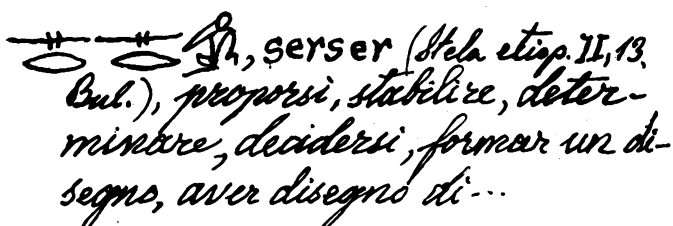 𓊃𓂋𓊃𓂋𓀁, serser (Stela etiop. II, 13,
Bul.), proporsi, stabilire, deter-
minare, decidersi, formar un di-
segno, aver disegno di...